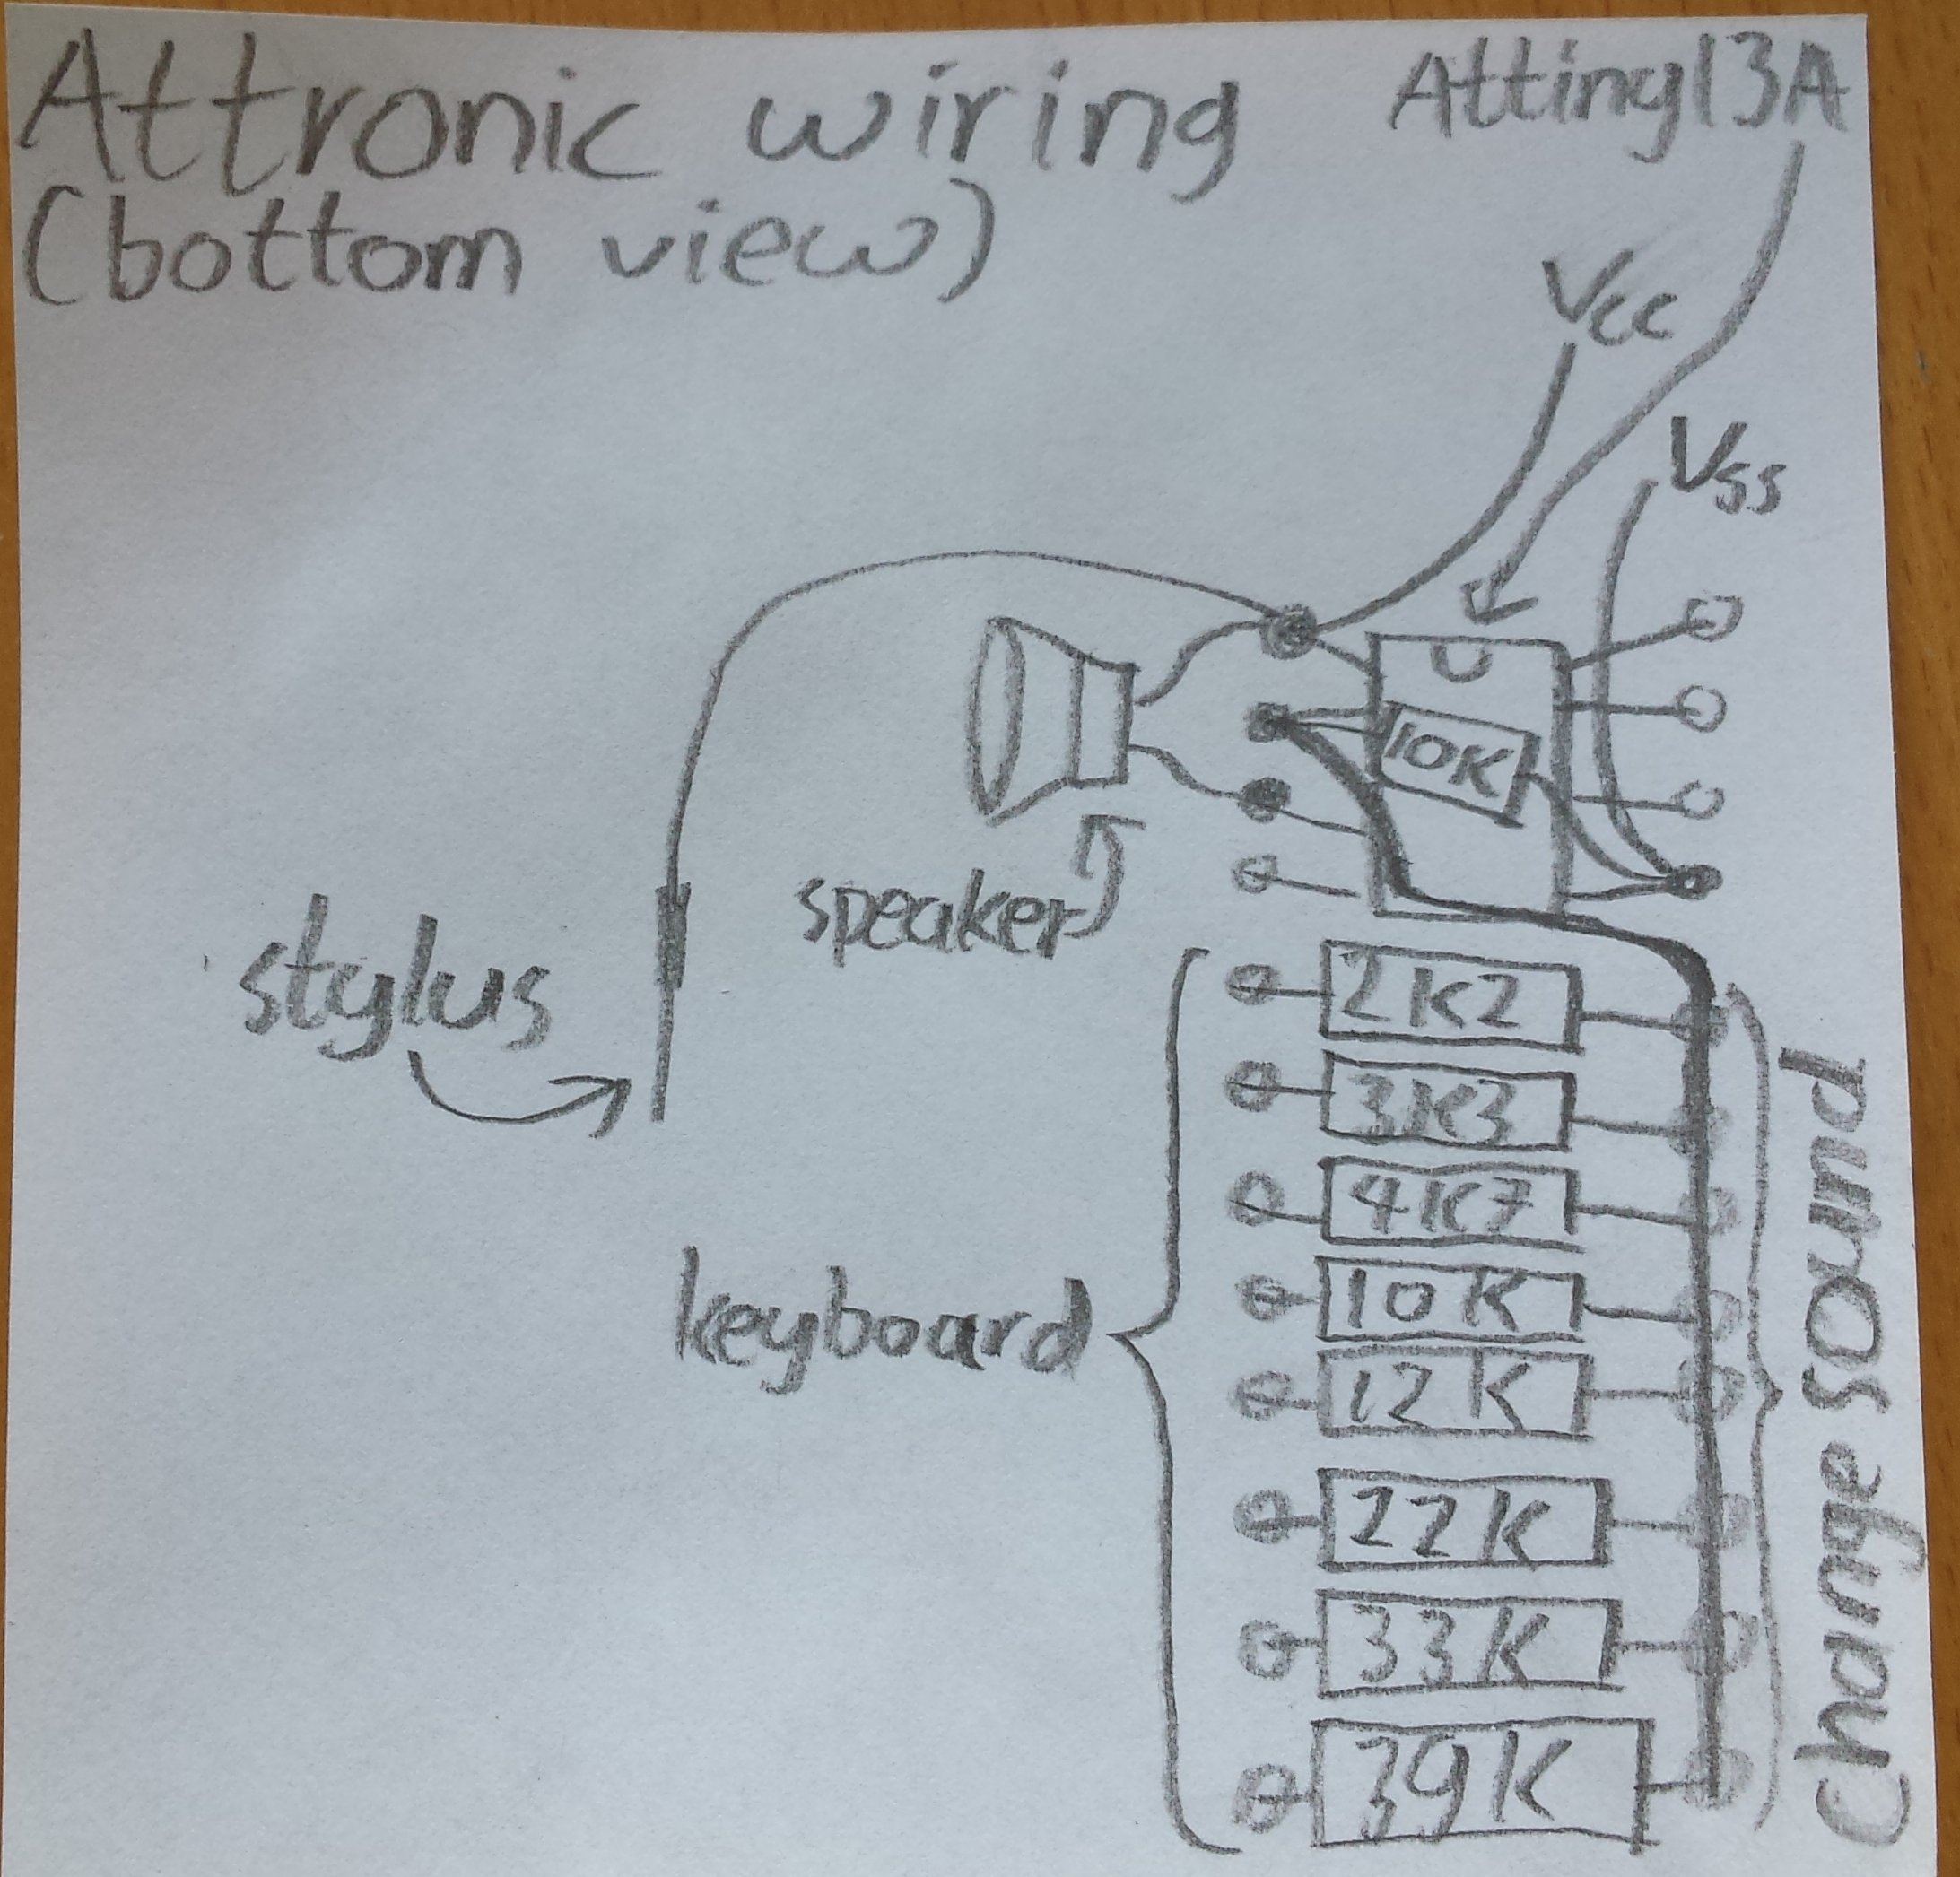 Attronic wiring
(bottom view)
Attiny13A
Vcc
Vss
10K
speaker
stylus
keyboard
2K2
3K3
4K7
10K
12K
22K
33K
39K
Change sound